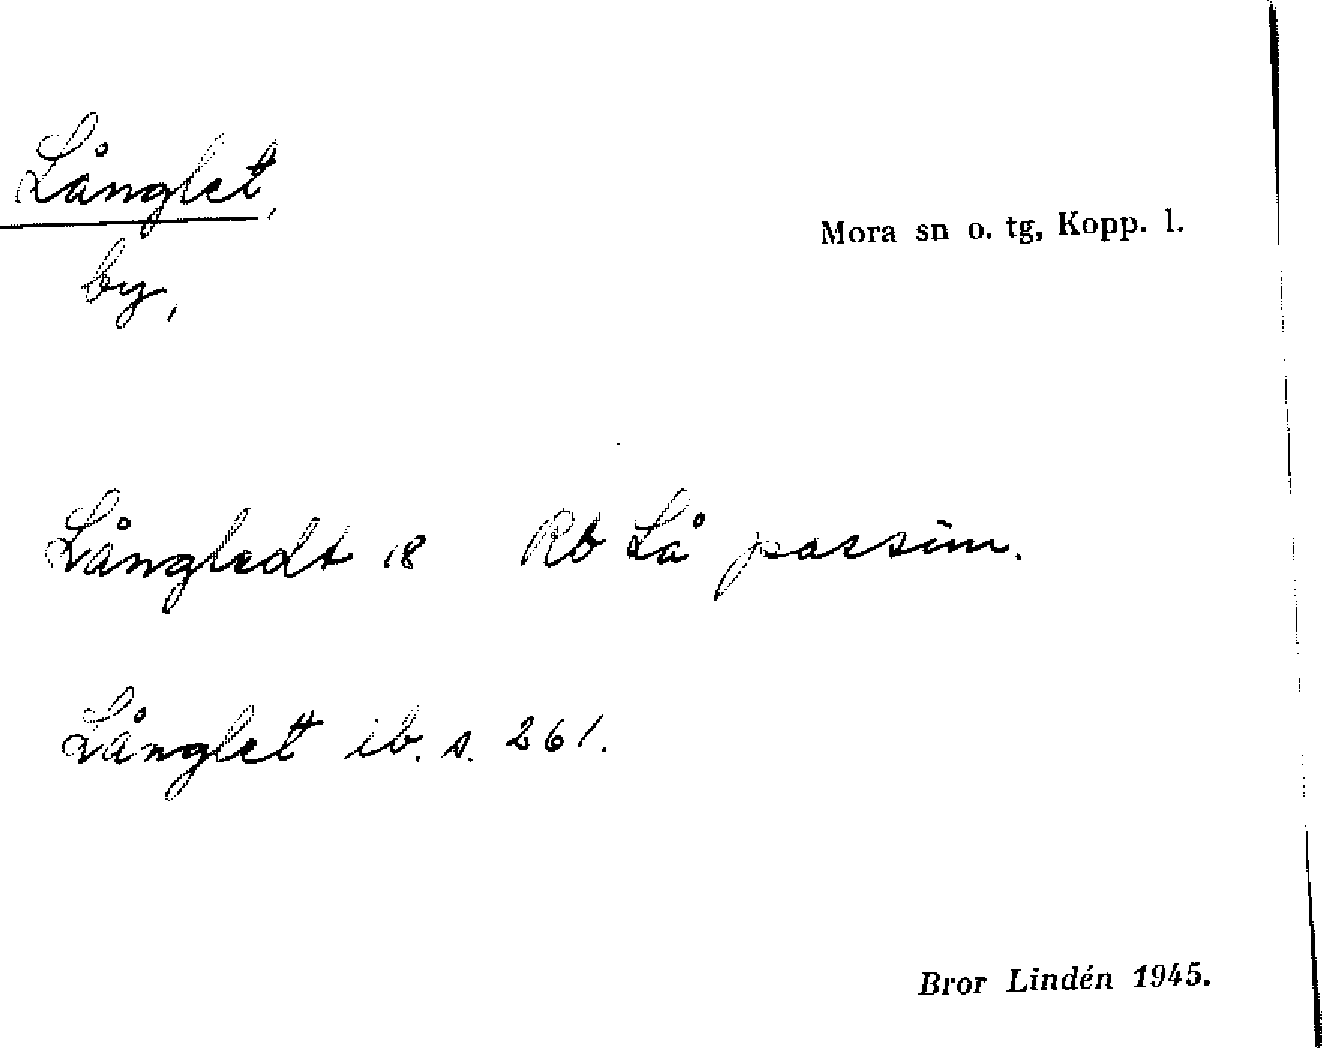 Långlet,
Mora sn o. tg, Kopp. l.
by,
Långledt 18 Rb Lå passim.
Långlet ib. s. 261.
Bror Lindén 1945.